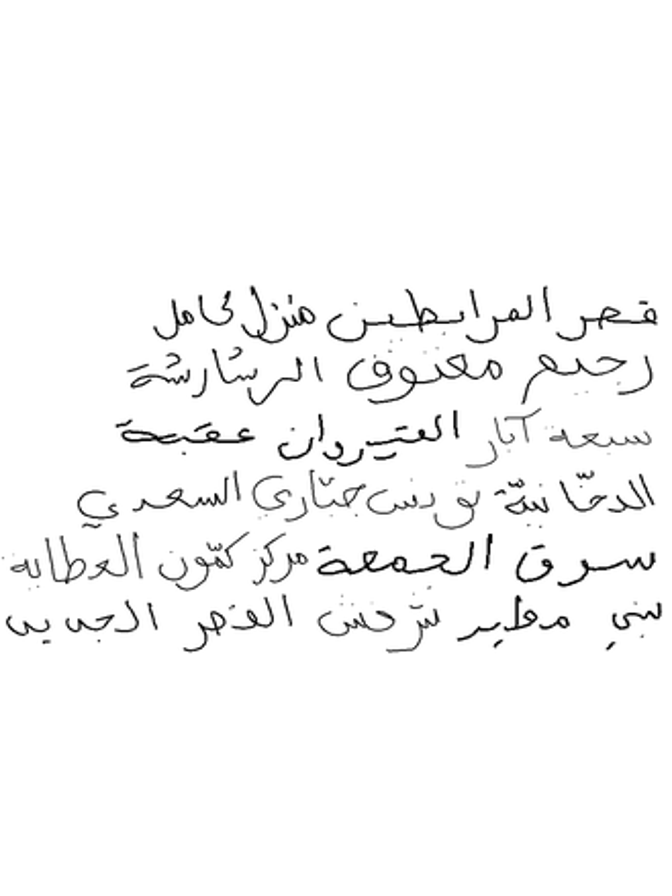 قصر المرابطين منزل كامل
رجيم معتوق الرشارشة
سبعة آبار القيروان عقبة
الدخّانيّة تونس السعدي
سوق الجمعة مركز كمّون العطاية
بني مطير القصر الجديد